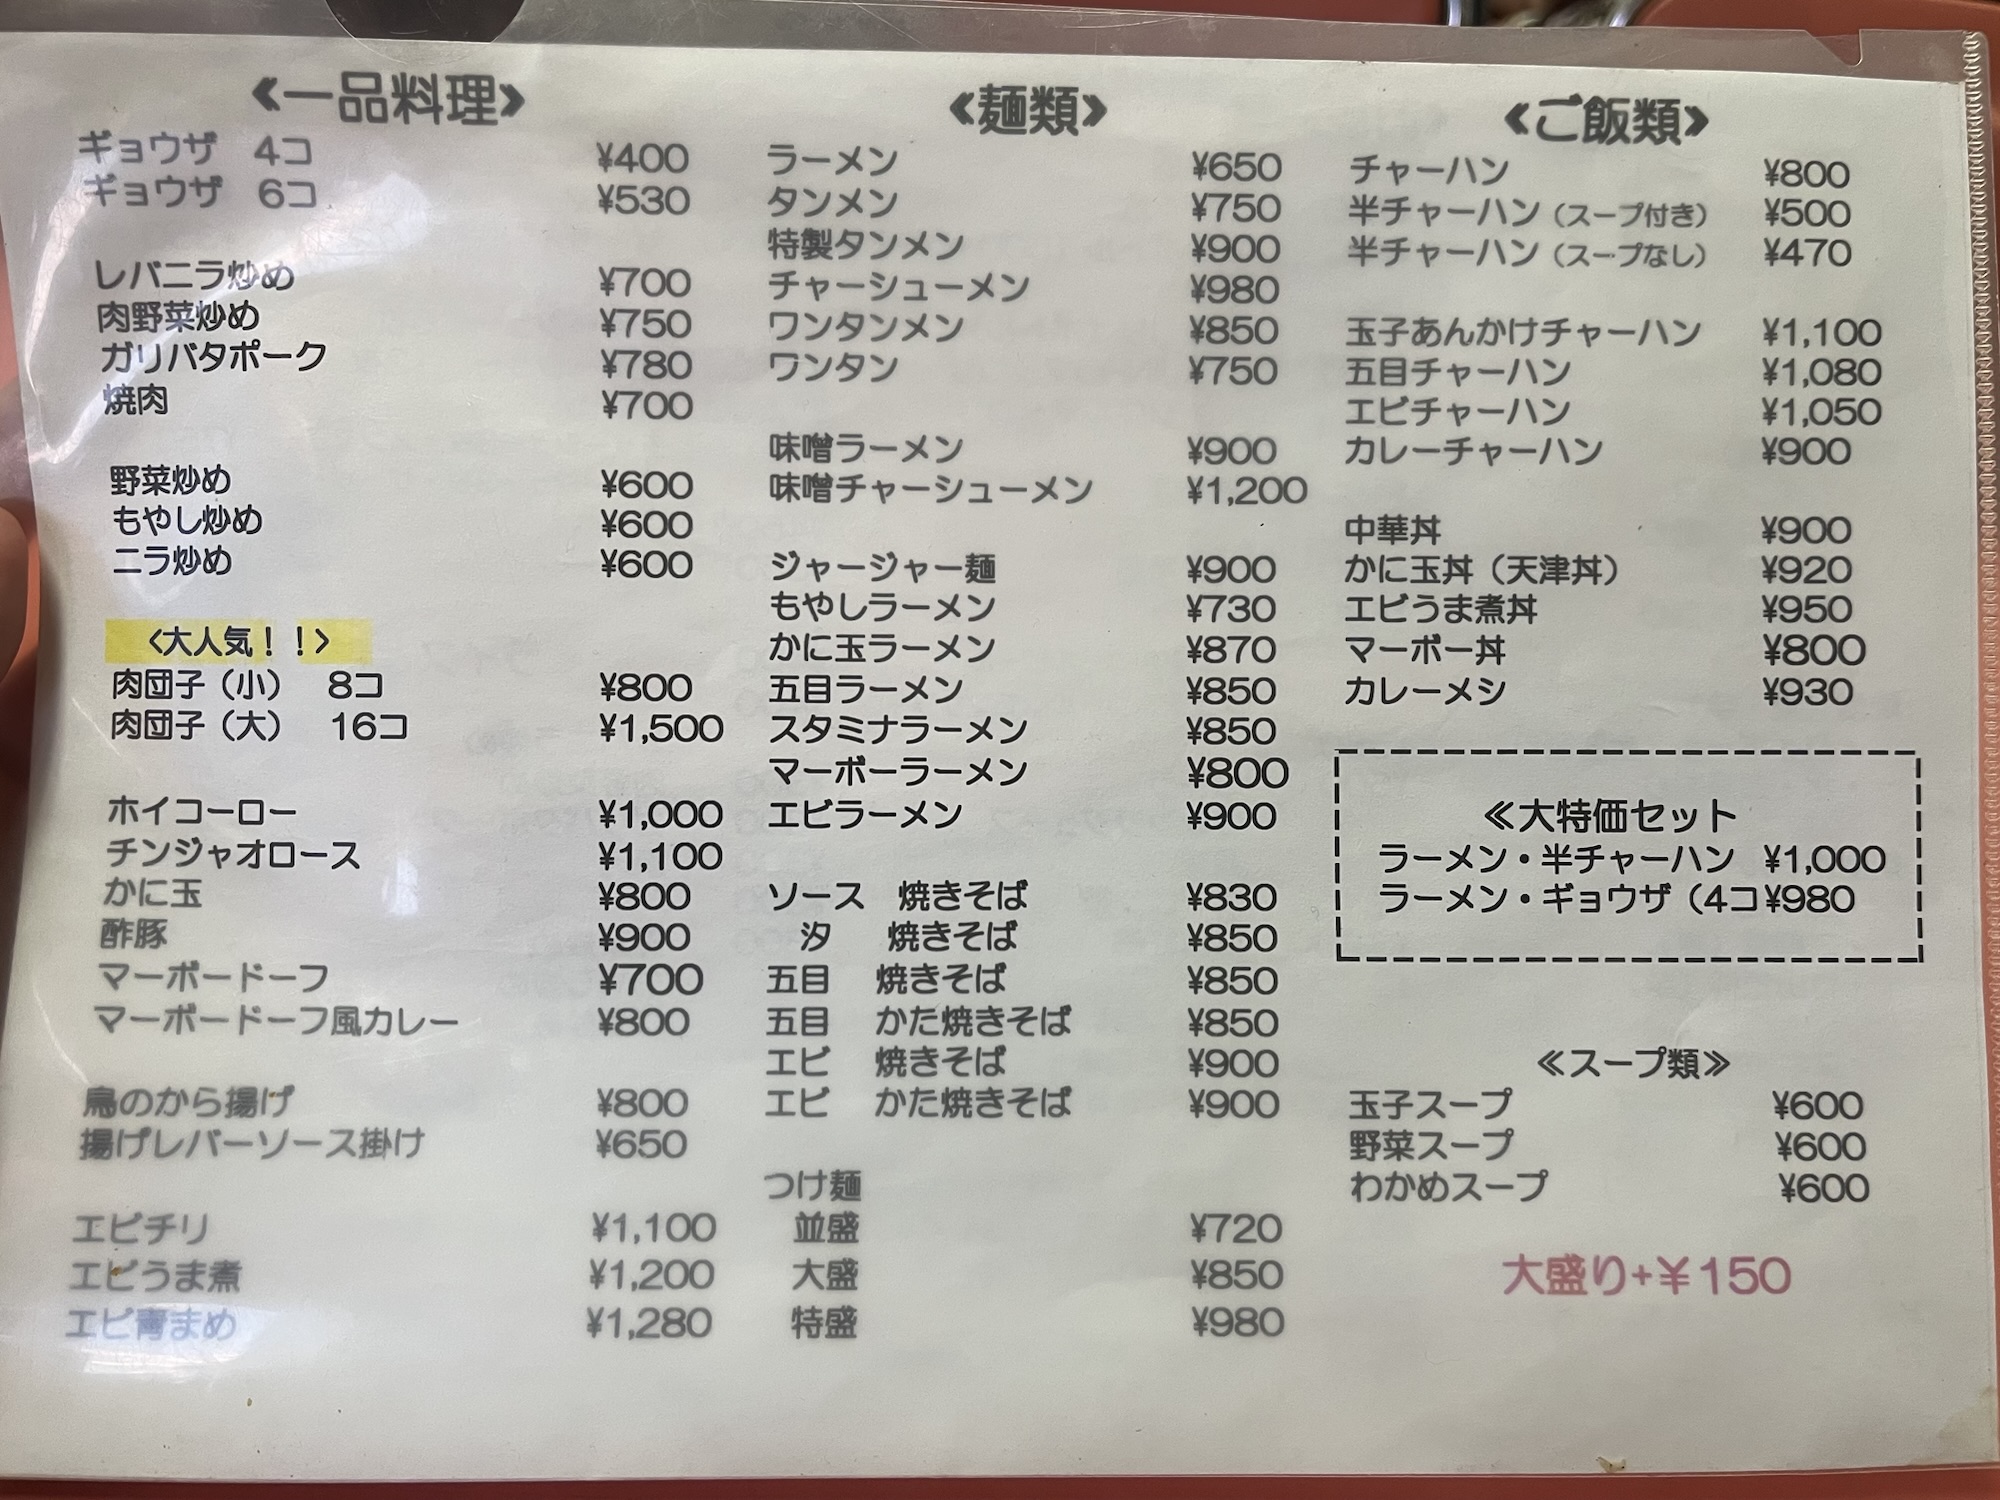 ≪一品料理≫
ギョウザ 4コ ¥400
ギョウザ 6コ ¥530
レバニラ炒め ¥700
肉野菜炒め ¥750
ガリバタポーク ¥780
焼肉 ¥700
野菜炒め ¥600
もやし炒め ¥600
ニラ炒め ¥600
<大人気！！>
肉団子（小） 8コ ¥800
肉団子（大） 16コ ¥1,500
ホイコーロー ¥1,000
チンジャオロース ¥1,100
かに玉 ¥800
酢豚 ¥900
マーボードーフ ¥700
マーボードーフ風カレー ¥800
鳥のから揚げ ¥800
揚げレバーソース掛け ¥650
エビチリ ¥1,100
エビうま煮 ¥1,200
エビ青まめ ¥1,280
≪麺類≫
ラーメン ¥650
タンメン ¥750
特製タンメン ¥900
チャーシューメン ¥980
ワンタンメン ¥850
ワンタン ¥750
味噌ラーメン ¥900
味噌チャーシューメン ¥1,200
ジャージャー麺 ¥900
もやしラーメン ¥730
かに玉ラーメン ¥870
五目ラーメン ¥850
スタミナラーメン ¥850
マーボーラーメン ¥800
エビラーメン ¥900
ソース 焼きそば ¥830
汐 焼きそば ¥850
五目 焼きそば ¥850
五目 かた焼きそば ¥850
エビ 焼きそば ¥900
エビ かた焼きそば ¥900
つけ麺
並盛 ¥720
大盛 ¥850
特盛 ¥980
≪ご飯類≫
チャーハン ¥800
半チャーハン（スープ付き） ¥500
半チャーハン（スープなし） ¥470
玉子あんかけチャーハン ¥1,100
五目チャーハン ¥1,080
エビチャーハン ¥1,050
カレーチャーハン ¥900
中華丼 ¥900
かに玉丼（天津丼） ¥920
エビうま煮丼 ¥950
マーボー丼 ¥800
カレーメシ ¥930
≪大特価セット
ラーメン・半チャーハン ¥1,000
ラーメン・ギョウザ（4コ ¥980
≪スープ類≫
玉子スープ ¥600
野菜スープ ¥600
わかめスープ ¥600
大盛り+￥150